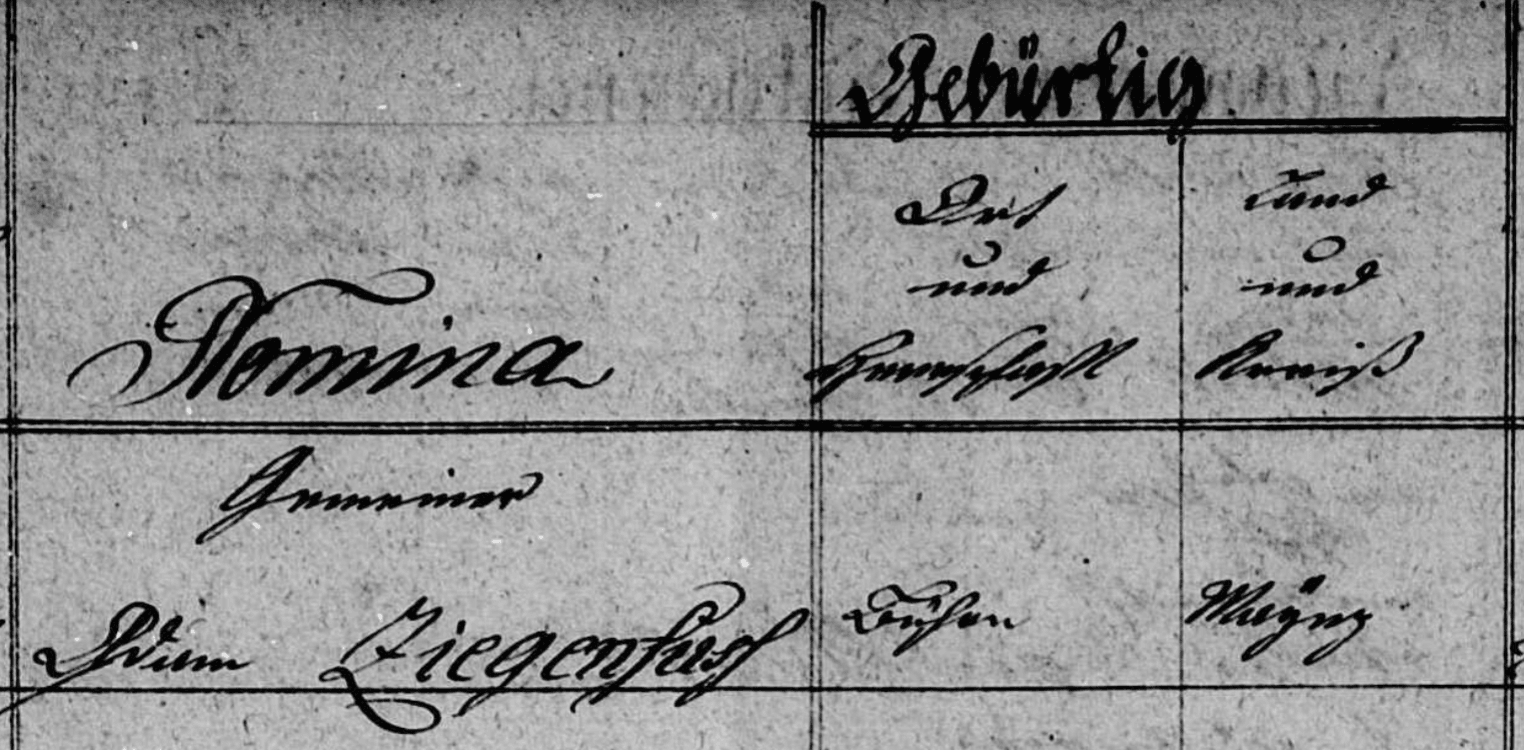 Gebürtig
Ort Land
und und
Nomina Herrschaft Kreiß
Gemeiner
Adam Ziegenfuß Maÿnz